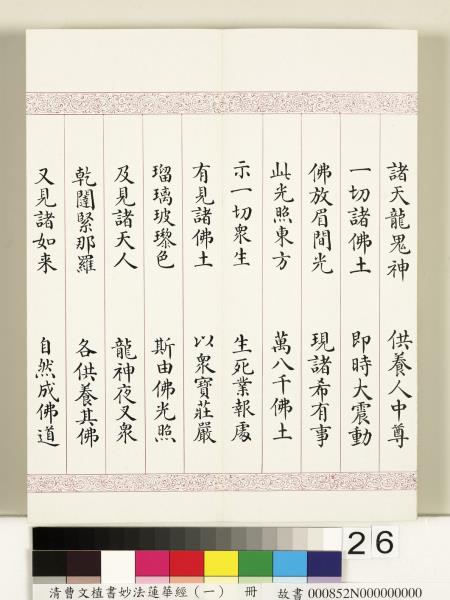 諸天龍鬼神　供養人中尊
一切諸佛土　即時大震動
佛放眉間光　現諸希有事
此光照東方　萬八千佛土
示一切衆生　生死業報處
有見諸佛土　以衆寶莊嚴
瑠璃玻瓈色　斯由佛光照
及見諸天人　龍神夜叉衆
乾闥緊那羅　各供養其佛
又見諸如来　自然成佛道
26
清曹文植書妙法蓮華經（一）　冊　故書 000852N000000000